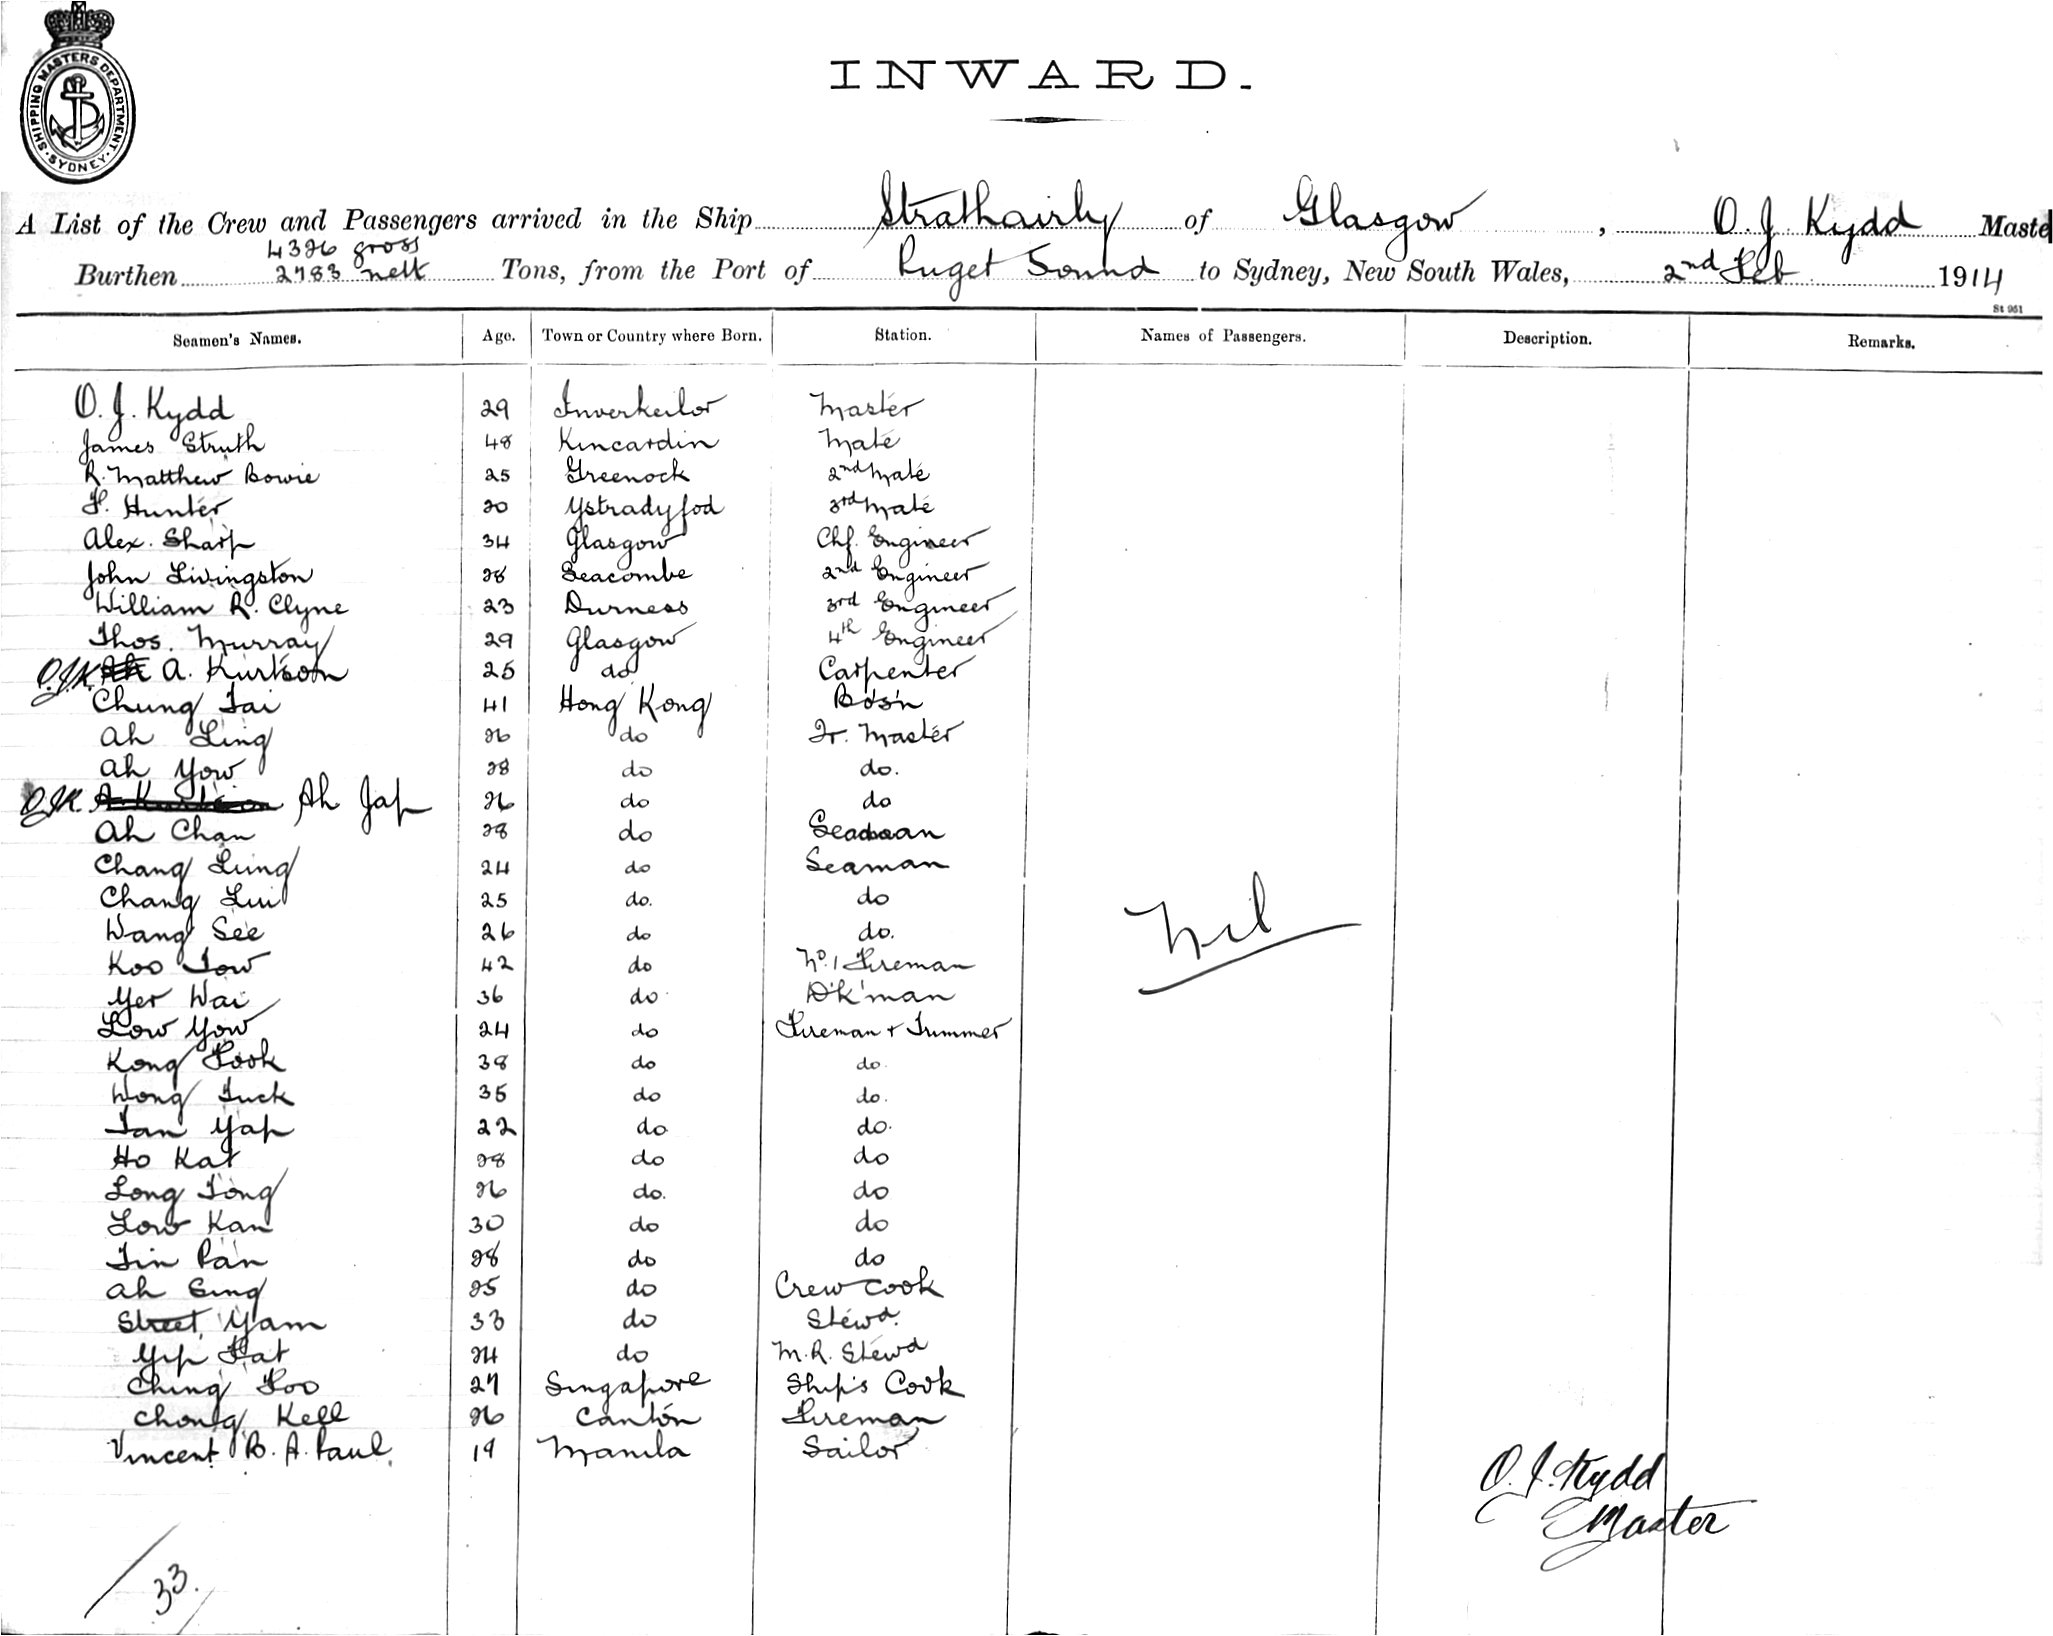 SHIPPING MASTERS DEPARTMENT. SYDNEY.
INWARD.
A List of the Crew and Passengers arrived in the Ship Strathairly of Glasgow, O. J. Kydd Maste
4326 gross
Burthen 2783 nett Tons, from the Port of Puget Sound to Sydney, New South Wales, 2nd Feb 1914
St 951
Seamen's Names. Age. Town or Country where Born. Station. Names of Passengers. Description. Remarks.
O. J. Kydd 29 Inverkeilor Master
James Struth 48 Kincardin Mate
R. Matthew Bowie 25 Greenock 2nd Mate
F. Hunter 20 Ystradyfod 3rd Mate
Alex. Sharp 34 Glasgow Chf. Engineer
John Livingston 28 Seacombe 2nd Engineer
William R. Clyne 23 Durness 3rd Engineer
Thos. Murray 29 Glasgow 4th Engineer
O.J.K. Ah A. Kurtson 25 do Carpenter
Chung Tai 41 Hong Kong Bos'n
Ah Ling 26 do Qr. Master
Ah Yow 28 do do.
O.J.K. A Kurtson Ah Jap 26 do do
Ah Chan 28 do Seaman
Chang Lung 24 do Seaman
Chang Lui 25 do. do
Wang See 26 do do.
Koo Tow 42 do No. 1 Fireman
Yer Wai 36 do D'k'man
Low Yow 24 do Fireman + Trimmer
Kong Fook 38 do do.
Wong Tuck 35 do do.
Tan Yap 22 do do.
Ho Kat 28 do do
Long Tong 26 do. do
Low Kan 30 do do
Tin Pan 28 do do
Ah Sing 25 do Crew Cook
Street Yam 33 do Stewd.
Yip Fat 24 do M. R. Stewd
Ching Foo 27 Singapore Ship's Cook
Chong Kell 26 Canton Fireman
Vincent B. A. Paul. 19 Manila Sailor
Nil
O. J. Kydd
Master
33.